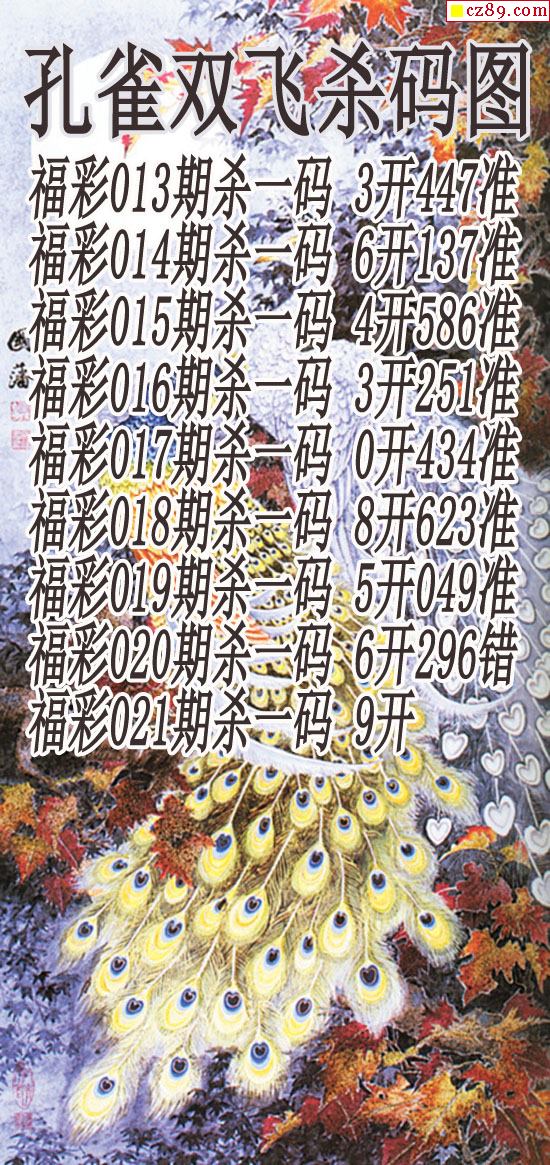 cz89.com
孔雀双飞杀码图
福彩013期杀一码 3开447准
福彩014期杀一码 6开137准
福彩015期杀一码 4开586准
福彩016期杀一码 3开251准
福彩017期杀一码 0开434准
福彩018期杀一码 8开623准
福彩019期杀一码 5开049准
福彩020期杀一码 6开296错
福彩021期杀一码 9开